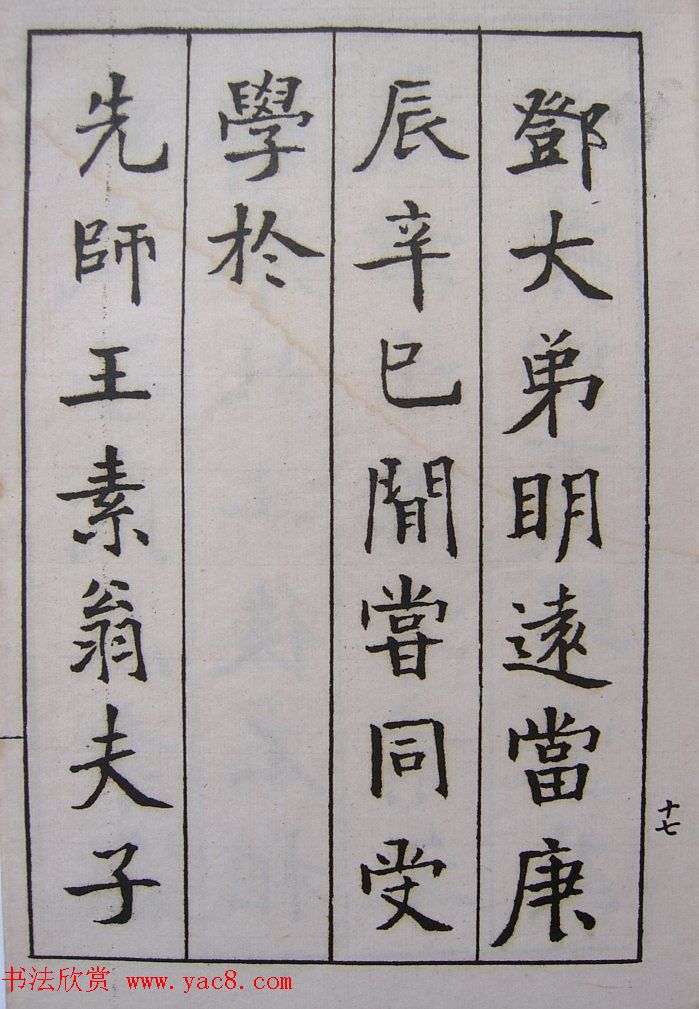 鄧大弟明遠當庚
辰辛巳間嘗同受
學於
先師王素翁夫子
十七
书法欣赏 www.yac8.com